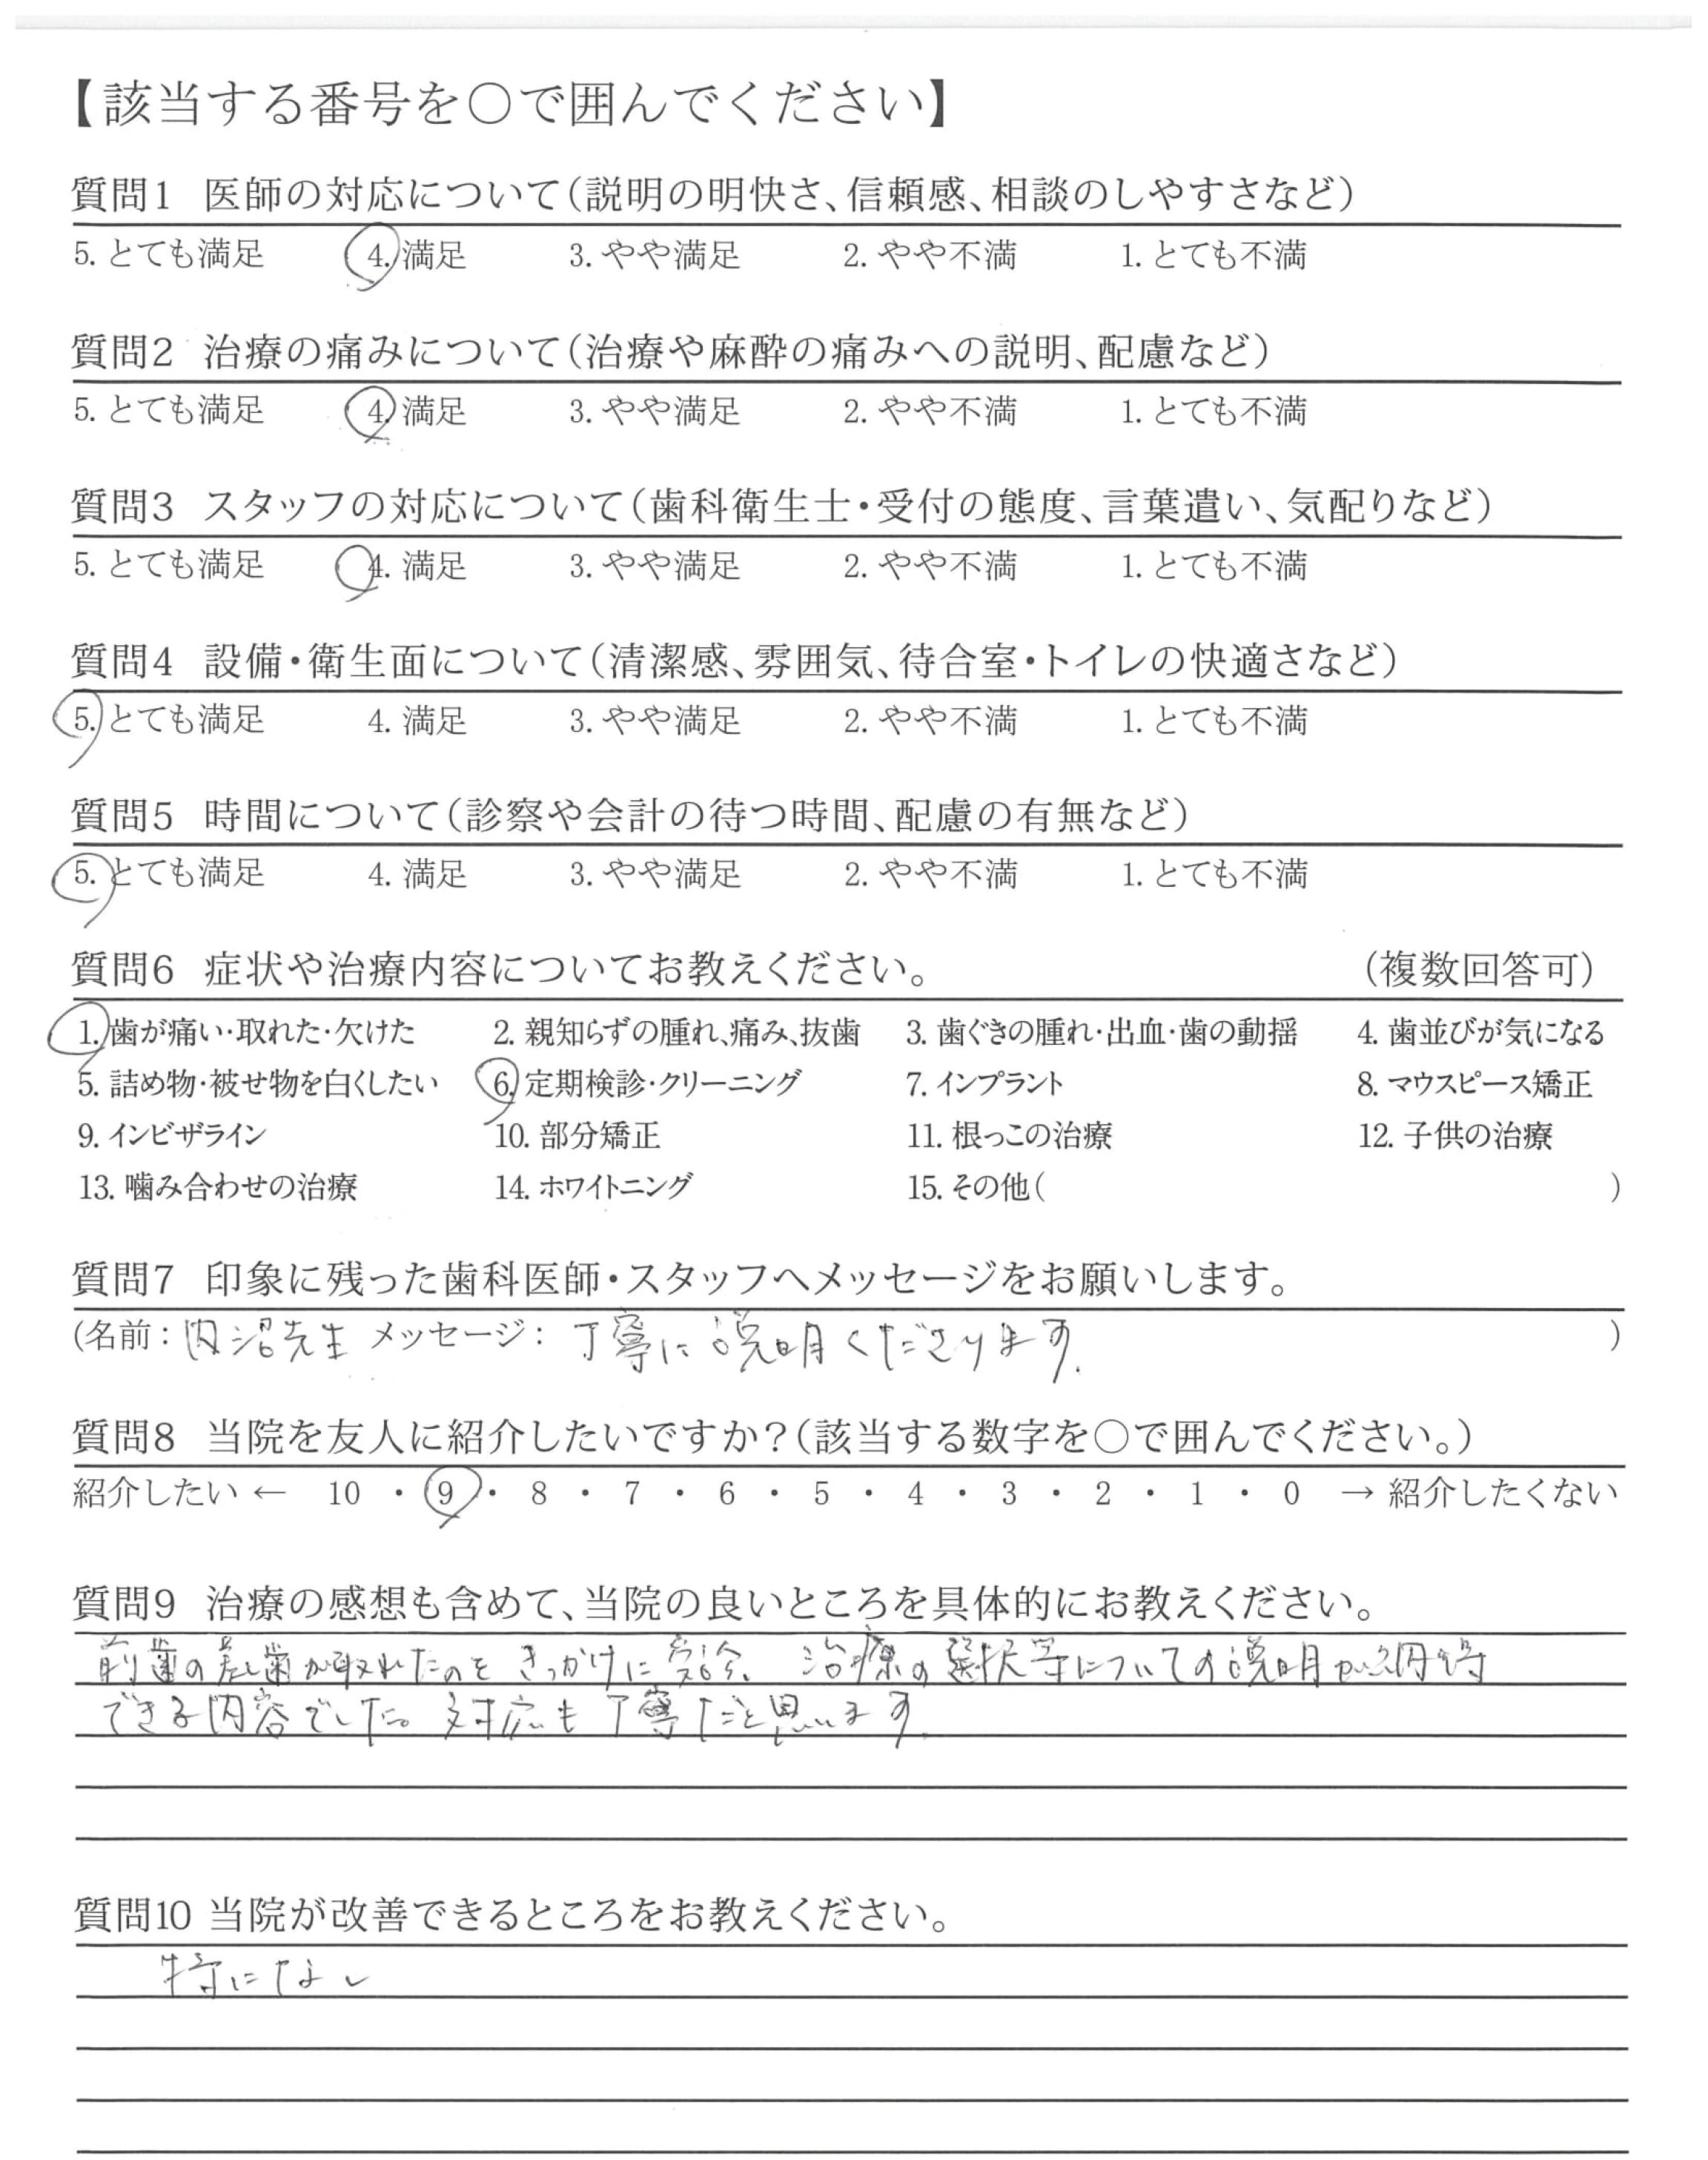 【該当する番号を○で囲んでください】
質問1 医師の対応について(説明の明快さ、信頼感、相談のしやすさなど)
5. とても満足 4. 満足 3. やや満足 2. やや不満 1. とても不満
質問2 治療の痛みについて(治療や麻酔の痛みへの説明、配慮など)
5. とても満足 4. 満足 3. やや満足 2. やや不満 1. とても不満
質問3 スタッフの対応について(歯科衛生士・受付の態度、言葉遣い、気配りなど)
5. とても満足 4. 満足 3. やや満足 2. やや不満 1. とても不満
質問4 設備・衛生面について(清潔感、雰囲気、待合室・トイレの快適さなど)
5. とても満足 4. 満足 3. やや満足 2. やや不満 1. とても不満
質問5 時間について(診察や会計の待つ時間、配慮の有無など)
5. とても満足 4. 満足 3. やや満足 2. やや不満 1. とても不満
質問6 症状や治療内容についてお教えください。 (複数回答可)
1. 歯が痛い・取れた・欠けた 2. 親知らずの腫れ、痛み、抜歯 3. 歯ぐきの腫れ・出血・歯の動揺 4. 歯並びが気になる
5. 詰め物・被せ物を白くしたい 6. 定期検診・クリーニング 7. インプラント 8. マウスピース矯正
9. インビザライン 10. 部分矯正 11. 根っこの治療 12. 子供の治療
13. 噛み合わせの治療 14. ホワイトニング 15. その他( )
質問7 印象に残った歯科医師・スタッフへメッセージをお願いします。
(名前:内沼先生 メッセージ: 丁寧に説明くださります. )
質問8 当院を友人に紹介したいですか?(該当する数字を○で囲んでください。)
紹介したい ← 10 ・ 9 ・ 8 ・ 7 ・ 6 ・ 5 ・ 4 ・ 3 ・ 2 ・ 1 ・ 0 → 紹介したくない
質問9 治療の感想も含めて、当院の良いところを具体的にお教えください。
前歯の差し歯が取れたのをきっかけに受診. 治療の選択等についての説明が納得
できる内容でした。対応も丁寧だと思います.
質問10 当院が改善できるところをお教えください。
特になし